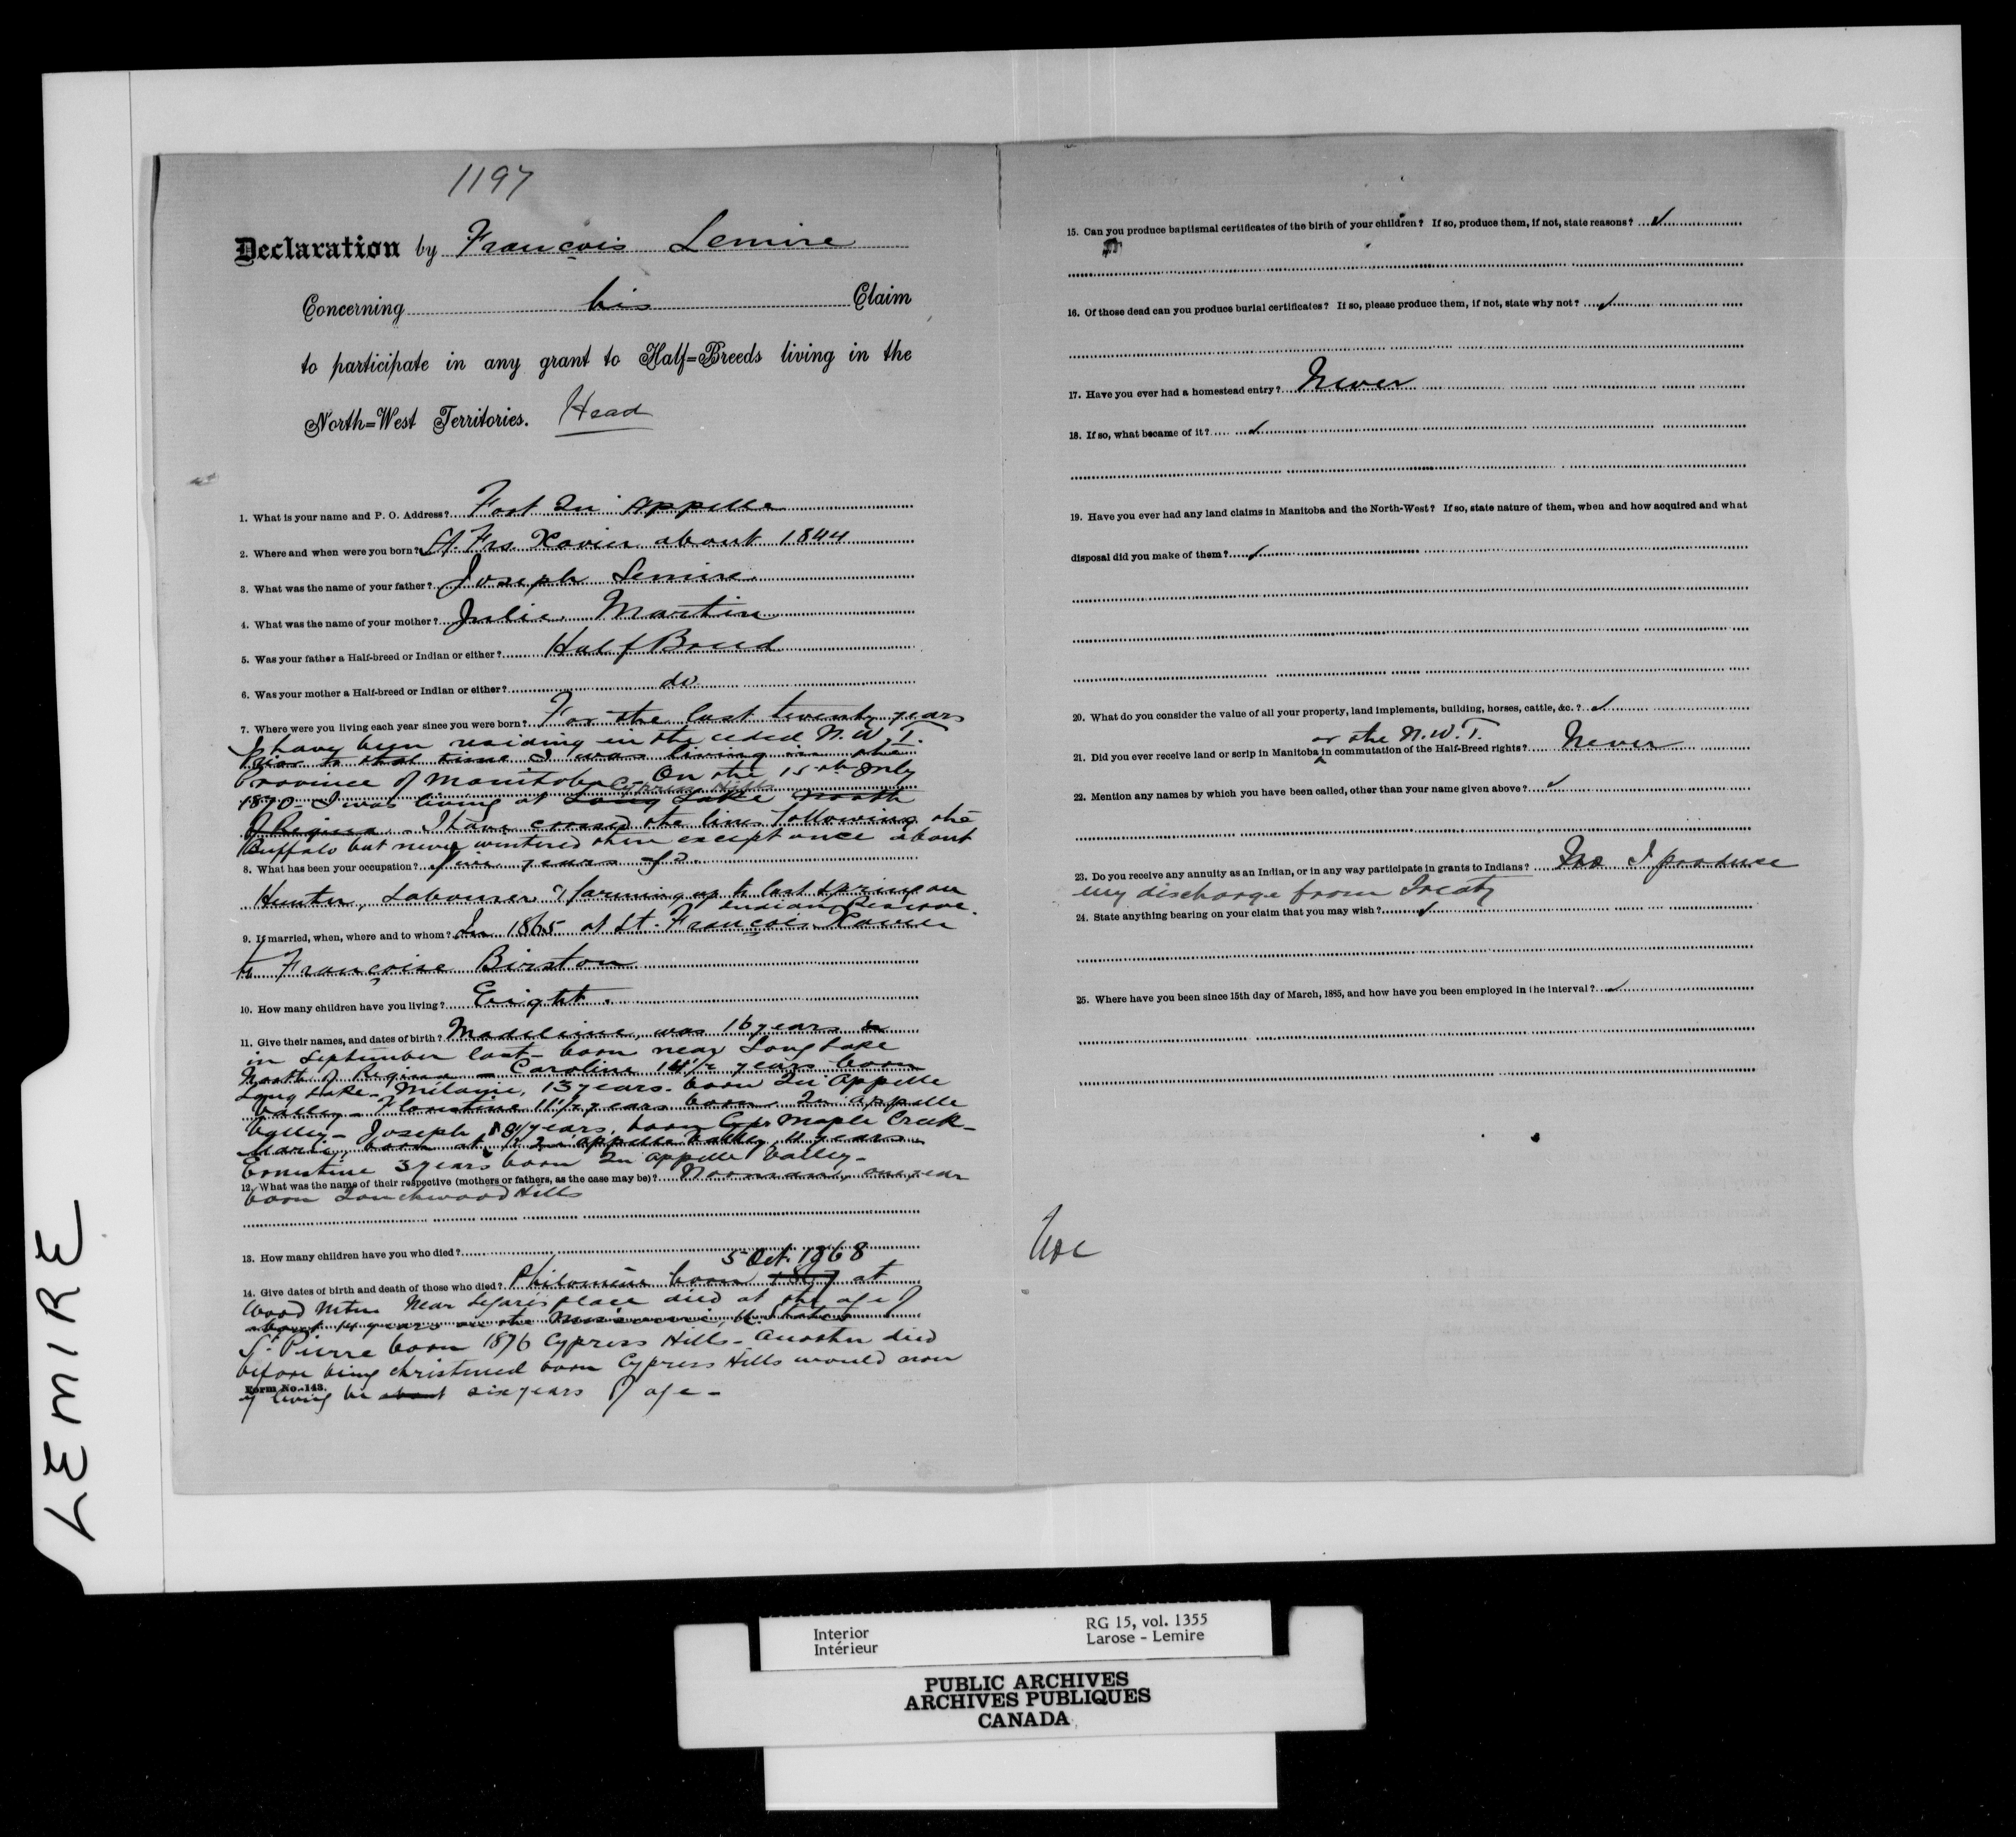 1197
Declaration by François Lemire
Concerning his Claim
to participate in any grant to Half=Breeds living in the
North=West Territories. Head
1. What is your name and P. O. Address? Fort Qu'Appelle
2. Where and when were you born? St. Frs Xavier about 1844
3. What was the name of your father? Joseph Lemire
4. What was the name of your mother? Julie Martin
5. Was your father a Half-breed or Indian or either? Half Breed
6. Was your mother a Half-breed or Indian or either? do
7. Where were you living each year since you were born? For the last twenty years
I have been residing in the ceded N.W.T.
Prior to that time I was living in the
Province of Manitoba - On the 15th July
Cypress Hills
1870 - I was living at Long Lake North
of Regina - I have crossed the lines following the
Buffalo but never wintered there except once about
8. What has been your occupation? five years ago.
Hunter, Labourer & farming up to last spring on
Indian Reserve.
9. If married, when, where and to whom? In 1865 at St. François Xavier
to Françoise Birston
10. How many children have you living? Eight.
11. Give their names, and dates of birth? Madeleine, was 16 years
in September last - born near Long Lake
North of Regina - Caroline 14½ years born
Long Lake - Mélanie, 13 years. born Qu'Appelle
Valley - Florestine 11½ years born Qu'Appelle
Valley - Joseph, 8½ years, born Cyp. Maple Creek -
Marie, born at Qu'Appelle Valley, years
Ernestine 3 years born Qu'Appelle Valley -
12. What was the name of their respective (mothers or fathers, as the case may be)? Normand, one year
born Touchwood Hills
13. How many children have you who died?
5 Oct. 1868
14. Give dates of birth and death of those who died? Philomène born 1867 at
Wood Mtn near Legaré's place died at the age of
about 14 years on the Missouri, U. States
St. Pierre born 1876 Cypress Hills - Another died
before being christened born Cypress Hills would now
Form No. 143.
if living be about six years of age -
15. Can you produce baptismal certificates of the birth of your children? If so, produce them, if not, state reasons?
16. Of those dead can you produce burial certificates? If so, please produce them, if not, state why not?
17. Have you ever had a homestead entry? Never
18. If so, what became of it?
19. Have you ever had any land claims in Manitoba and the North-West? If so, state nature of them, when and how acquired and what
disposal did you make of them?
20. What do you consider the value of all your property, land implements, building, horses, cattle, &c.?
or the N.W.T.
21. Did you ever receive land or scrip in Manitoba in commutation of the Half-Breed rights? Never
22. Mention any names by which you have been called, other than your name given above?
23. Do you receive any annuity as an Indian, or in any way participate in grants to Indians? No I produce
my discharge from Treaty
24. State anything bearing on your claim that you may wish?
25. Where have you been since 15th day of March, 1885, and how have you been employed in the interval?
LEMIRE
Interior
Intérieur
RG 15, vol. 1355
Larose - Lemire
PUBLIC ARCHIVES
ARCHIVES PUBLIQUES
CANADA